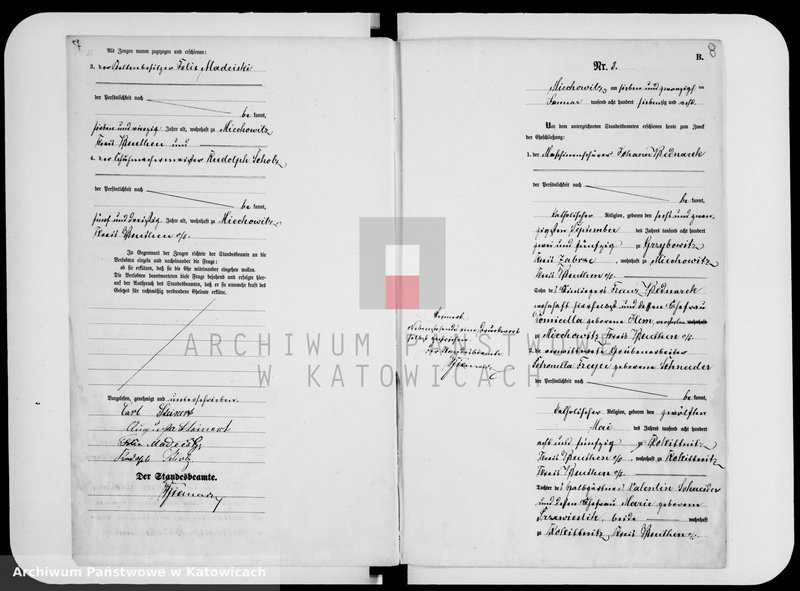 7
Als Zeugen waren zugezogen und erschienen:
3. der Stellenbesitzer Felix Madeiski
der Persönlichkeit nach
be kannt,
sieben und vierzig Jahre alt, wohnhaft zu Miechowitz
Kreis Beuthen und
4. der Schuhmachermeister Rudolph Scholz
der Persönlichkeit nach
be kannt,
fünf und dreißig Jahre alt, wohnhaft zu Miechowitz
Kreis Beuthen o/s.
In Gegenwart der Zeugen richtete der Standesbeamte an die
Verlobten einzeln und nacheinander die Frage:
ob sie erklären, daß sie die Ehe miteinander eingehen wollen.
Die Verlobten beantworteten diese Frage bejahend und erfolgte hier-
auf der Ausspruch des Standesbeamten, daß er sie nunmehr kraft des
Gesetzes für rechtmäßig verbundene Eheleute erkläre.
Vorgelesen, genehmigt und unterschrieben.
Carl Steinert
Auguste Steinert
Felix Madeiski
Rudolph Scholz
Der Standesbeamte.
8
B.
Nr. 3.
Miechowitz, am sieben und zwanzigsten
Januar tausend acht hundert siebenzig und acht.
Vor dem unterzeichneten Standesbeamten erschienen heute zum Zweck
der Eheschließung:
1. der Maschinenschürer Johann Bednarek
der Persönlichkeit nach
be kannt,
katholischer Religion, geboren den sechs und zwan-
zigsten September des Jahres tausend acht hundert
zwei und fünfzig zu Grzybowitz
Kreis Zabrze, wohnhaft zu Miechowitz
Kreis Beuthen o/s.
Sohn des Einliegers Franz Bednarek
und dessen Ehefrau
geborene
Miechowitz Kreis Beuthen o/s.
2. die verwittwete Grubenarbeiter
Petronella geborene Schneider
der Persönlichkeit nach
be kannt,
katholischer Religion, geboren den zwölften
Mai des Jahres tausend acht hundert
acht und fünfzig zu Rokittnitz
Kreis Beuthen o/s., wohnhaft zu Rokittnitz
Kreis Beuthen o/s.
Tochter des Halbgärtners Valentin Schneider
und dessen Ehefrau Marie geborene
beide wohnhaft
zu Rokittnitz Kreis Beuthen o/s.
Vermerk.
Nebenstehende
Der Standesbeamte
ARCHIWUM PAŃSTWOWE
W KATOWICACH
Archiwum Państwowe w Katowicach